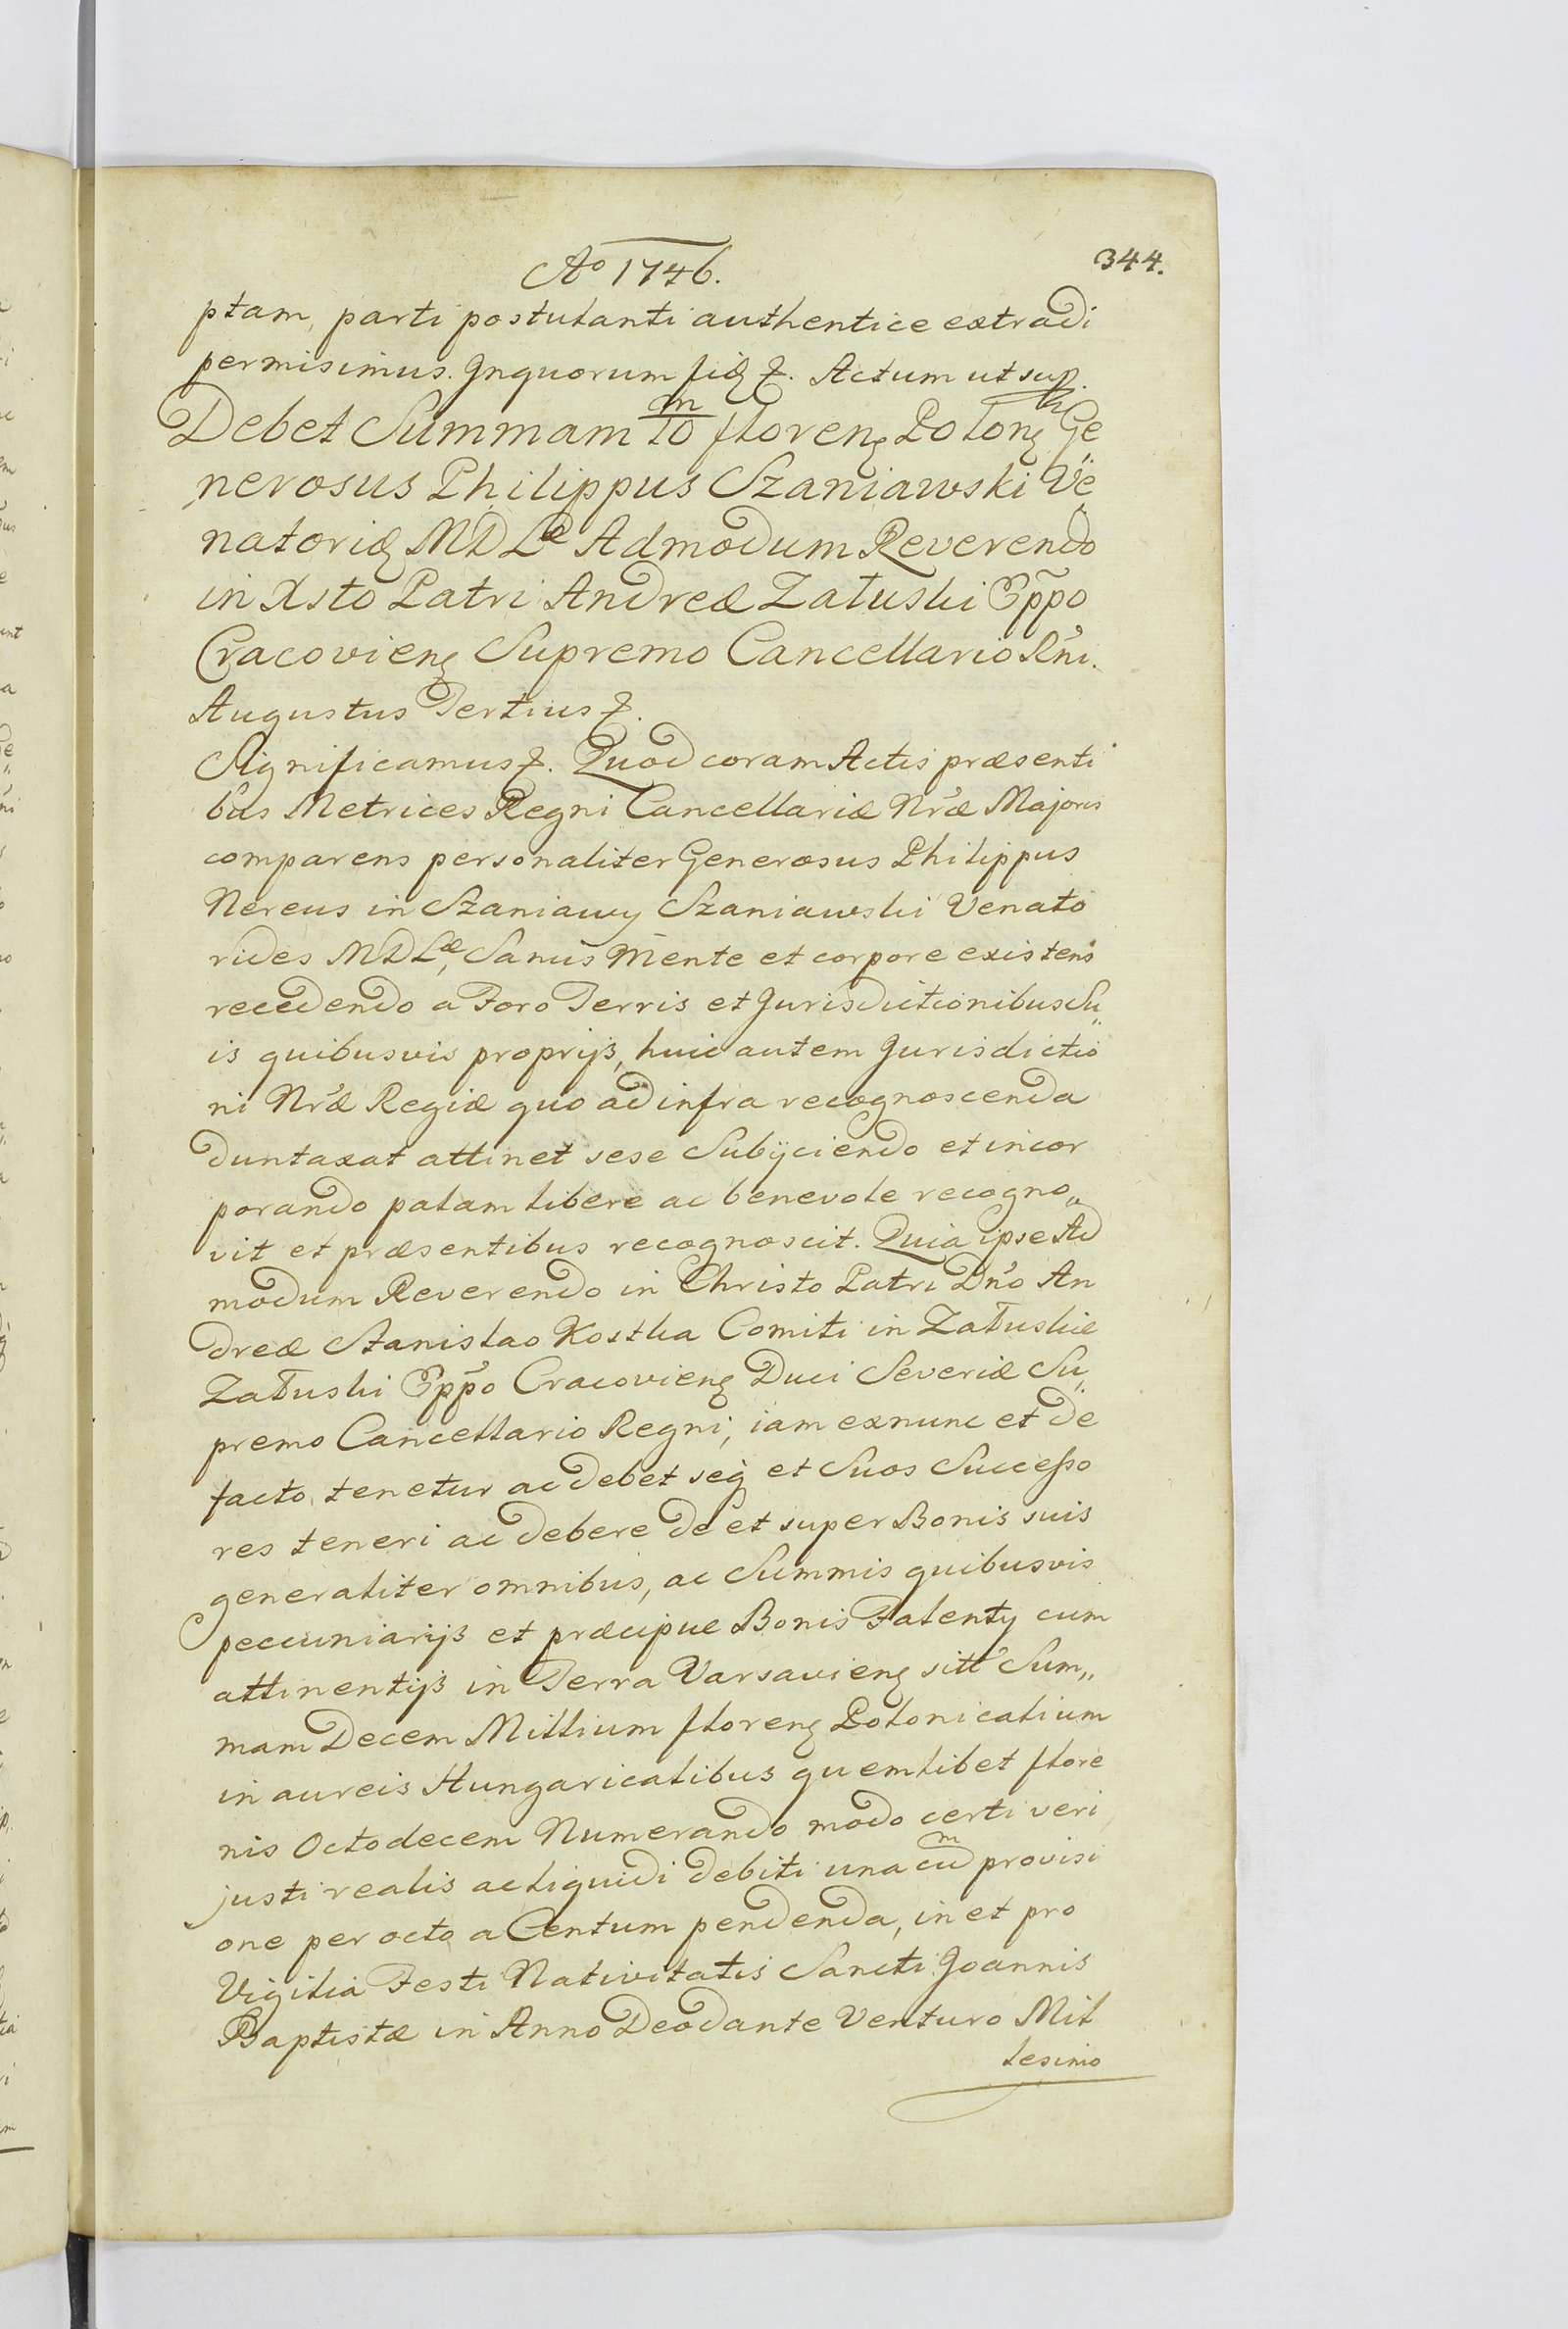 Ao 1746.
344.
ptam, parti postulanti authentice extradi
permisimus. Inquorum fid &. Actum ut sup.
Debet Summam 10/m floren Polon Ge
nerosus Philippus Szaniawski Ve„
natorid MDLæ Admodum Reverendo
in Xsto Patri Andreæ Załuski Eppo
Cracovien Supremo Cancellario Rni.
Augustus Tertius &.
Significamus &. Quod coram Actis præsenti
bus Metrices Regni Cancellariæ Nræ Majoris
comparens personaliter Generosus Philippus
Nereus in Szaniawy Szaniawski Venato
rides MDLæ, Sanus Mente et corpore existens
recedendo a Foro Terris et Jurisdictionibus Su„
is quibusvis proprijs, huic autem Jurisdictio
ni Nræ Regiæ quo ad infra recognoscenda
duntaxat attinet sese Subijciendo et incor
porando palam libere ac benevole recogno„
vit et præsentibus recognoscit. Quia ipse Ad
modum Reverendo in Christo Patri Dno An
dreæ Stanislao Kostka Comiti in Załuskie
Załuski Eppo Cracovien Duci Severiæ Su„
premo Cancellario Regni, iam exnunc et de
facto, tenetur ac debet seq et Suos Successo
res teneri ac debere de et super Bonis suis
generaliter omnibus, ac Summis quibusvis
pecuniarijs et præcipue Bonis Falenty cum
attinentijs in Terra Varsavien sitt Sum„
mam Decem Millium floren Polonicalium
in aureis Hungaricalibus quemlibet flore
nis Octodecem Numerando modo certi veri
justi realis ac liquidi debiti una cum provisi
one per octo a Centum pendenda, in et pro
Vigilia Festi Nativitatis Sancti Joannis
Baptistæ in Anno Deodante Venturo Mil
lesimo